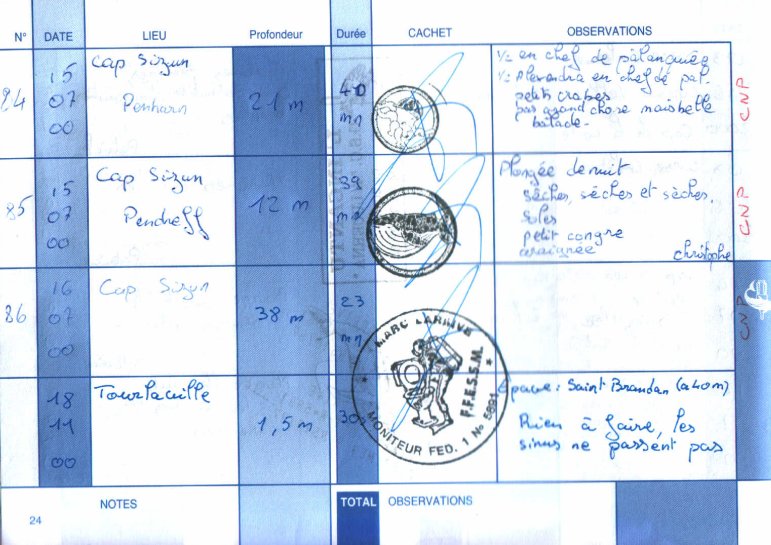 N° DATE LIEU Profondeur Durée CACHET OBSERVATIONS
84
15
07
00
Cap Sizun
Penharn
21 m
40
mn
1/2 en chef de palanquée
1/2 Alexandra en chef de pal.
petits crabes
pas grand chose mais belle
balade.
CNP
85
15
07
00
Cap Sizun
Pendreff
12 m
39
mn
Plongée de nuit
Sèches, sèches et sèches,
soles
petit congre
araignée
christophe
CNP
86
16
07
00
Cap Sizun
38 m
23
mn
CNP
MARC LARRIVE
F.F.E.S.S.M.
MONITEUR FED. 1 No 5691
18
11
00
Tourlaville
1,5 m
30
Epave : Saint Brandan (a 40m)
Rien à faire, les
sinus ne passent pas
NOTES
TOTAL OBSERVATIONS
24